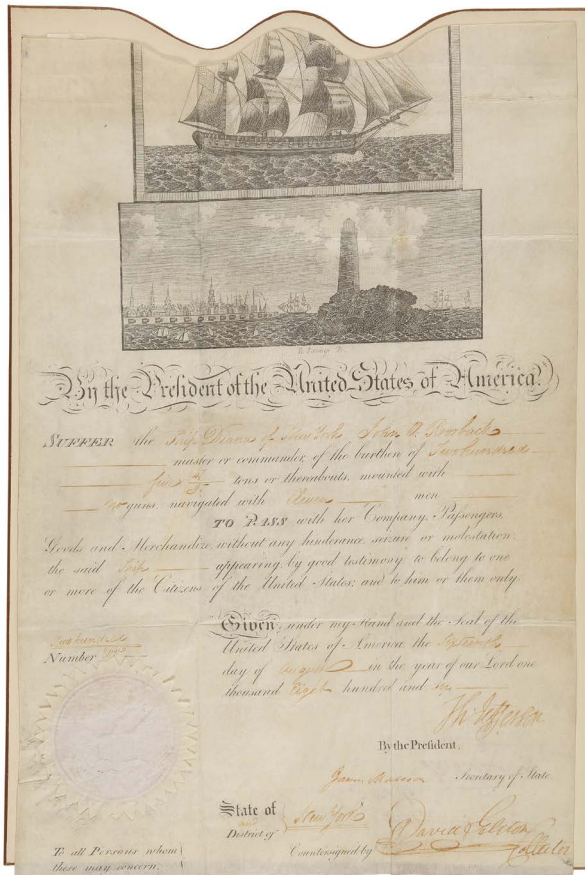 By the President of the United States of America.
SUFFER the Ship Diana of New York John
master or commander, of the burthen of Two hundred
five tons or thereabouts, mounted with
no guns, navigated with Eleven men
TO PASS with her Company, Passengers,
Goods and Merchandize, without any hinderance, seizure or molestation,
the said Ship appearing by good testimony to belong to one
or more of the Citizens of the United States; and to him or them only.
Given, under my Hand and the Seal of the
United States of America, the
day of August in the year of our Lord one
thousand Eight hundred and
Number
Th: Jefferson
By the President,
James Madison Secretary of State
State of
and New York
District of
Countersigned by David Gelston
Collector
To all Persons whom
these may concern.